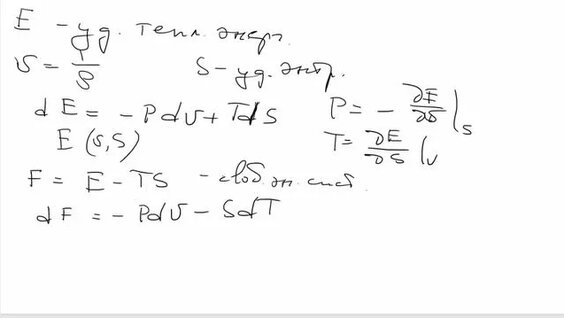 E - уд. тепл. энерг.
υ = 1/ρ S - уд. энтр.
dE = - Pdυ + TdS P = - ∂E/∂υ |s
E (υ, S) T = ∂E/∂S |υ
F = E - TS - своб. эн. сист.
dF = - Pdυ - SdT